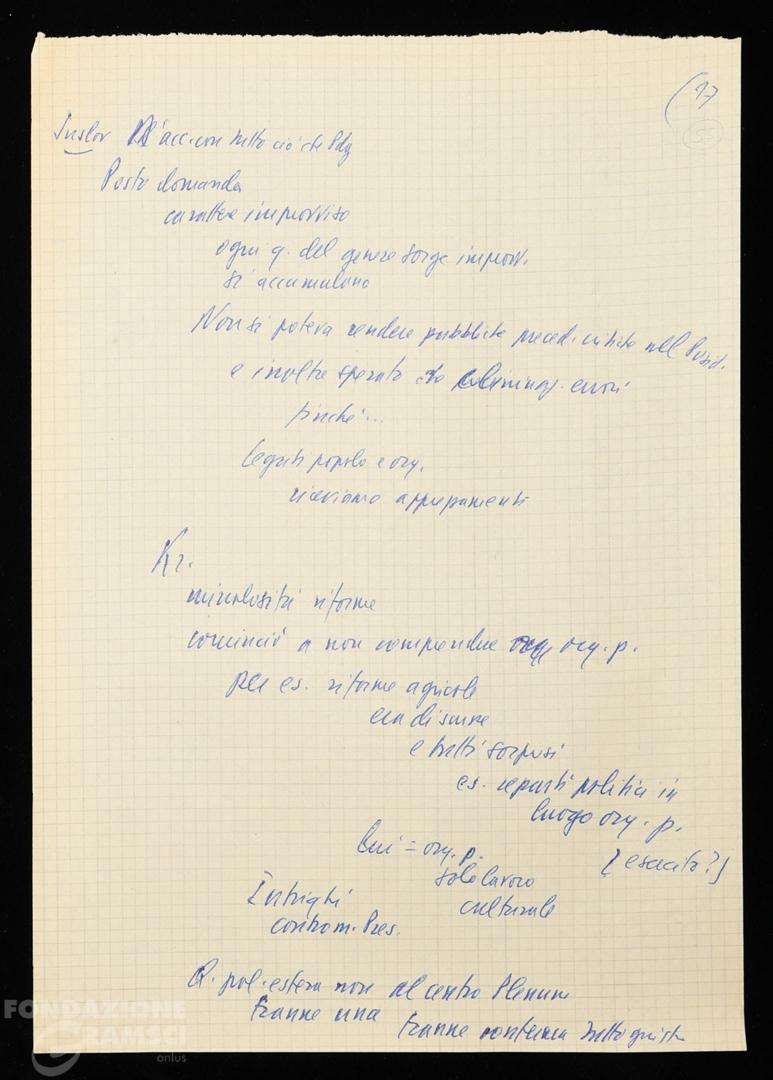 (17
53
Suslov D'acc. con tutto ciò che Pdg
Posto domanda
carattere improvviso
ogni q. del genere sorge improvv.
si accumulano
Non si poteva rendere pubbliche preced. critiche nel Presid.
e inoltre sperato che eliminasse errori
finché...
Legati popolo e org.
riceviamo apprezzamenti
Kr.
miracolosità riforme
cominciò a non comprendere org. p.
per es. riforme agricole
era di scurre
e tutti sorpresi
es. reparti politici in
luogo org. p.
[esercito?]
Lui = org. p.
solo lavoro
culturale
Intrighi
contro m. Pres.
Q. pol. estera non al centro Plenum
tranne una
tranne tutto giusto
FONDAZIONE
GRAMSCI
onlus